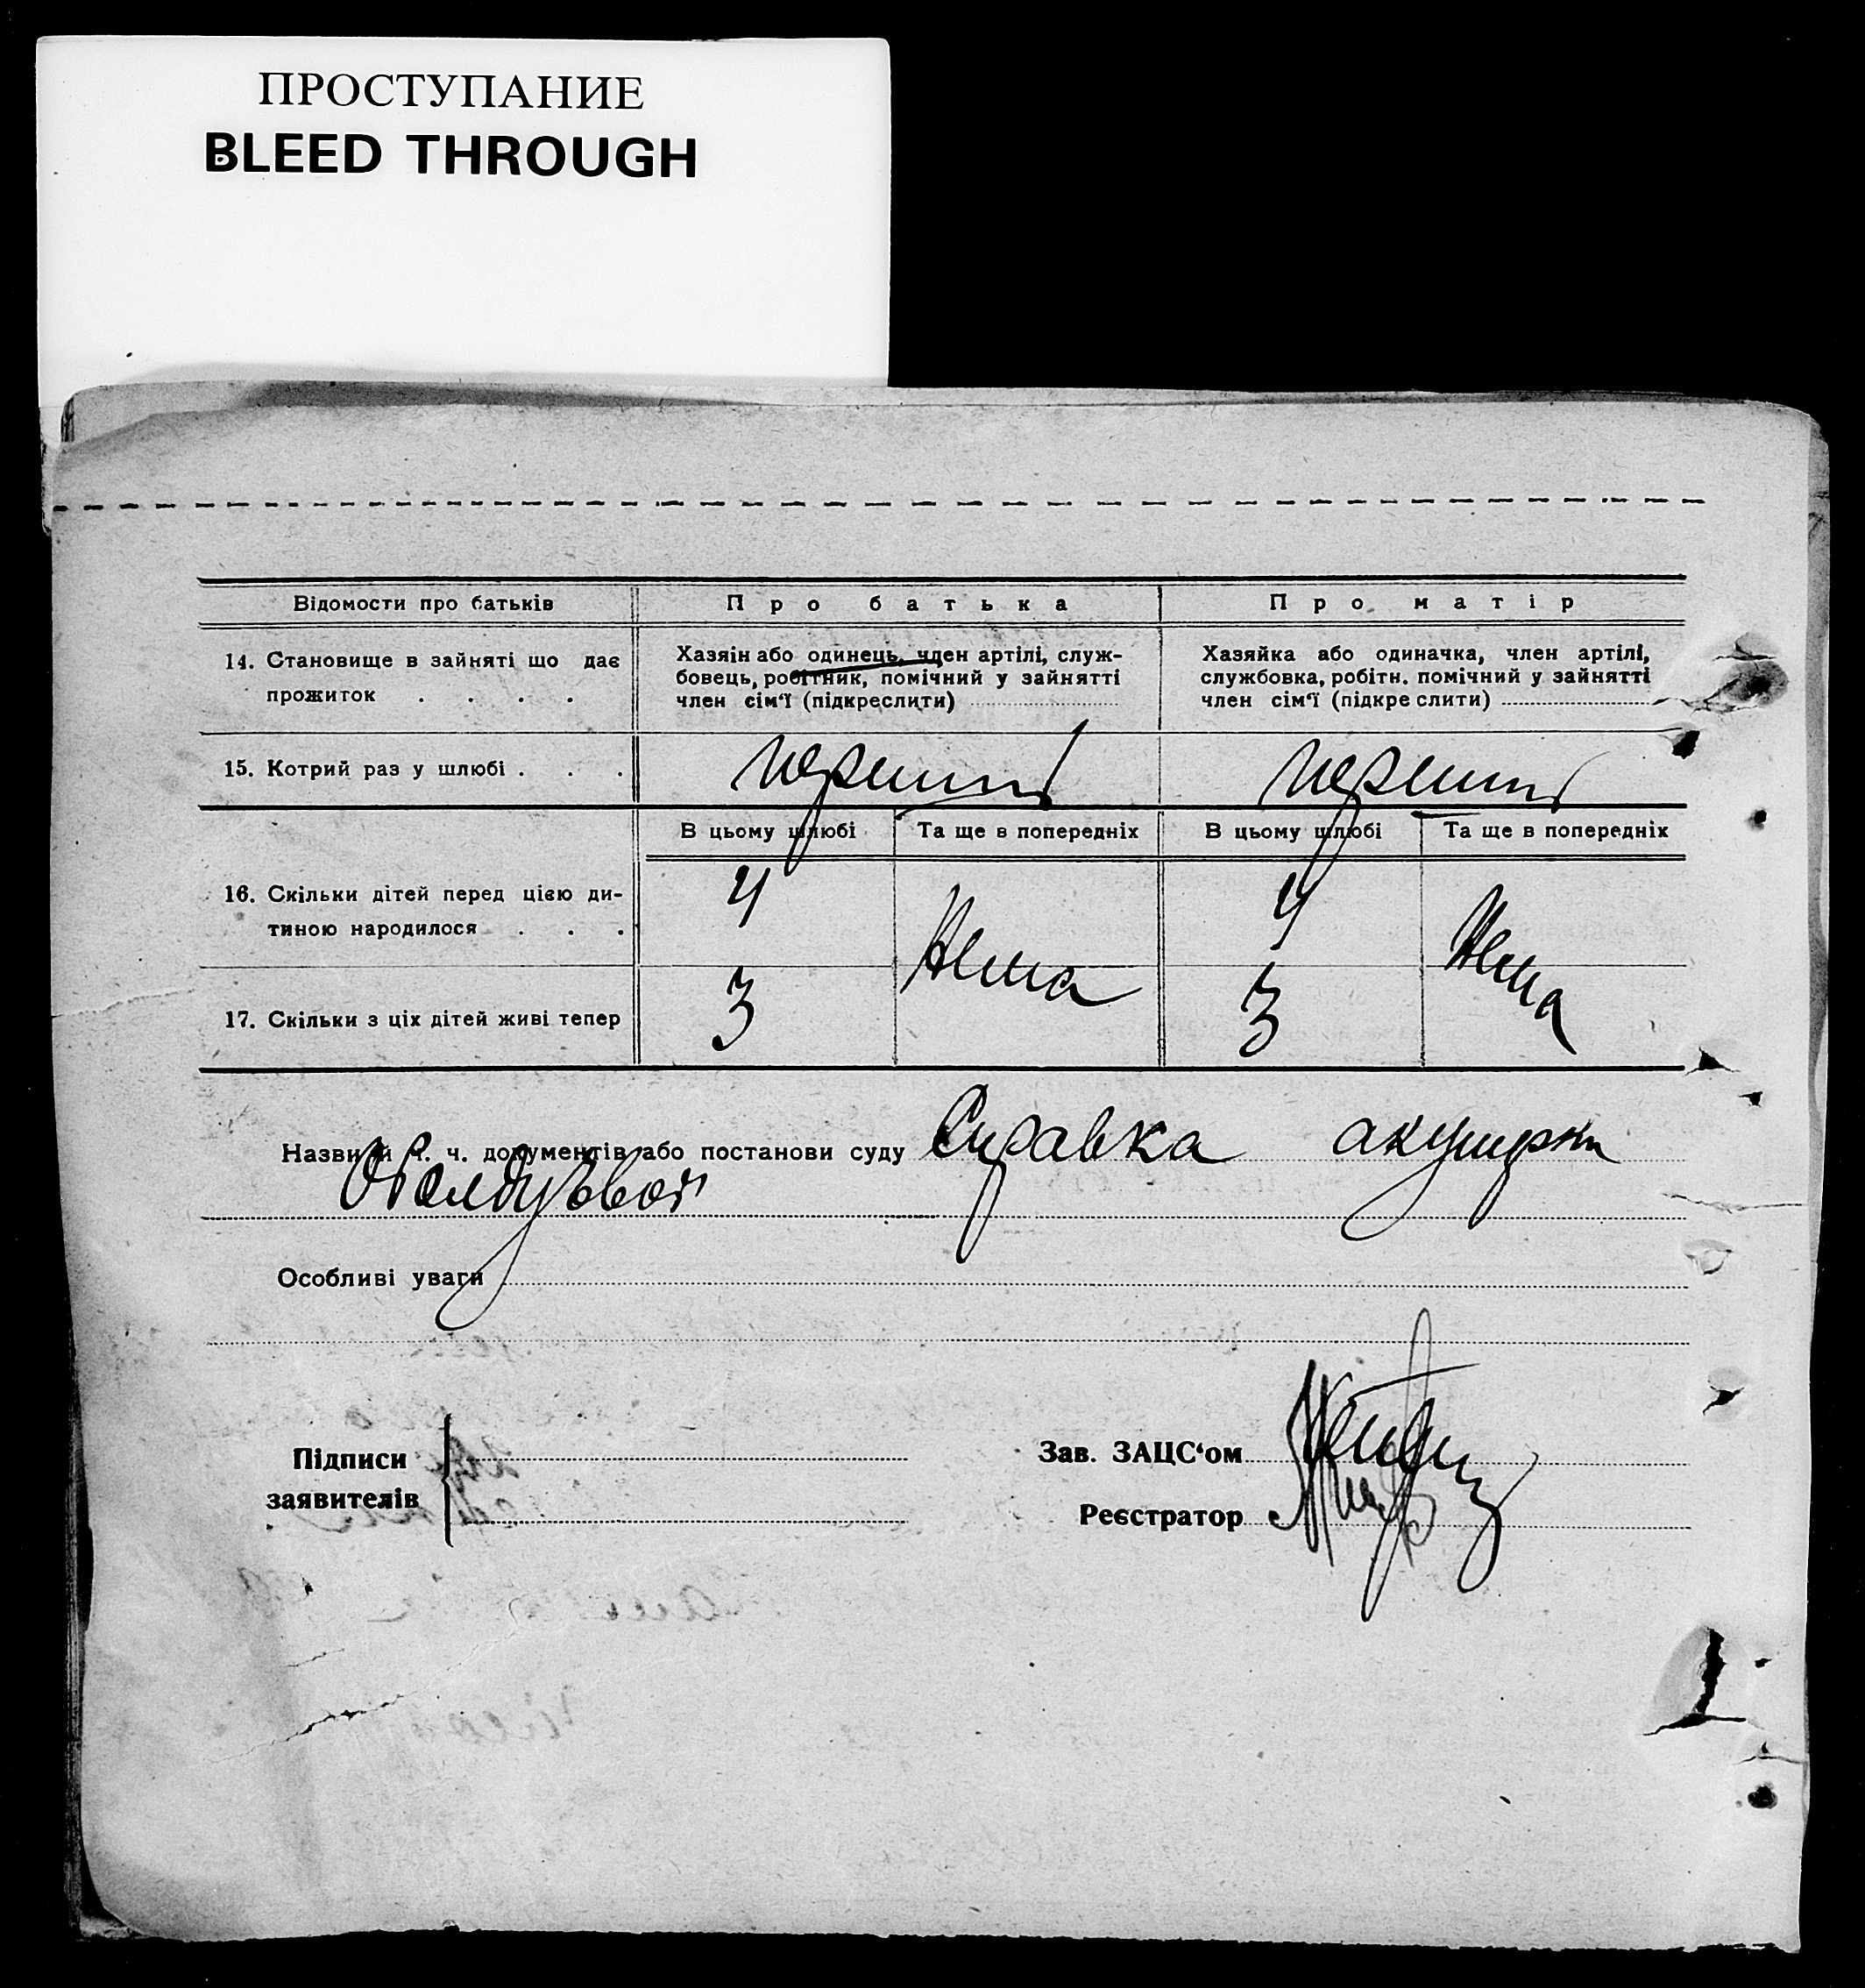 ПРОСТУПАНИЕ
BLEED THROUGH
Відомости про батьків
Про батька
Про матір
14. Становище в зайняті що дає
прожиток . . . .
Хазяїн або одинець, член артілі, служ-
бовець, робітник, помічний у зайнятті
член сім'ї (підкреслити)
Хазяйка або одиначка, член артілі,
службовка, робітн. помічний у зайнятті
член сім'ї (підкре слити)
15. Котрий раз у шлюбі . . .
перший
перший
В цьому шлюбі
Та ще в попередніх
В цьому шлюбі
Та ще в попередніх
16. Скільки дітей перед цією ди-
тиною народилося . . .
4
Нема
4
Нема
17. Скільки з ціх дітей живі тепер
3
3
Назви й ч. ч. документів або постанови суду Справка акушерки
Особливі уваги
Підписи
заявителів
Зав. ЗАЦС'ом
Реєстратор